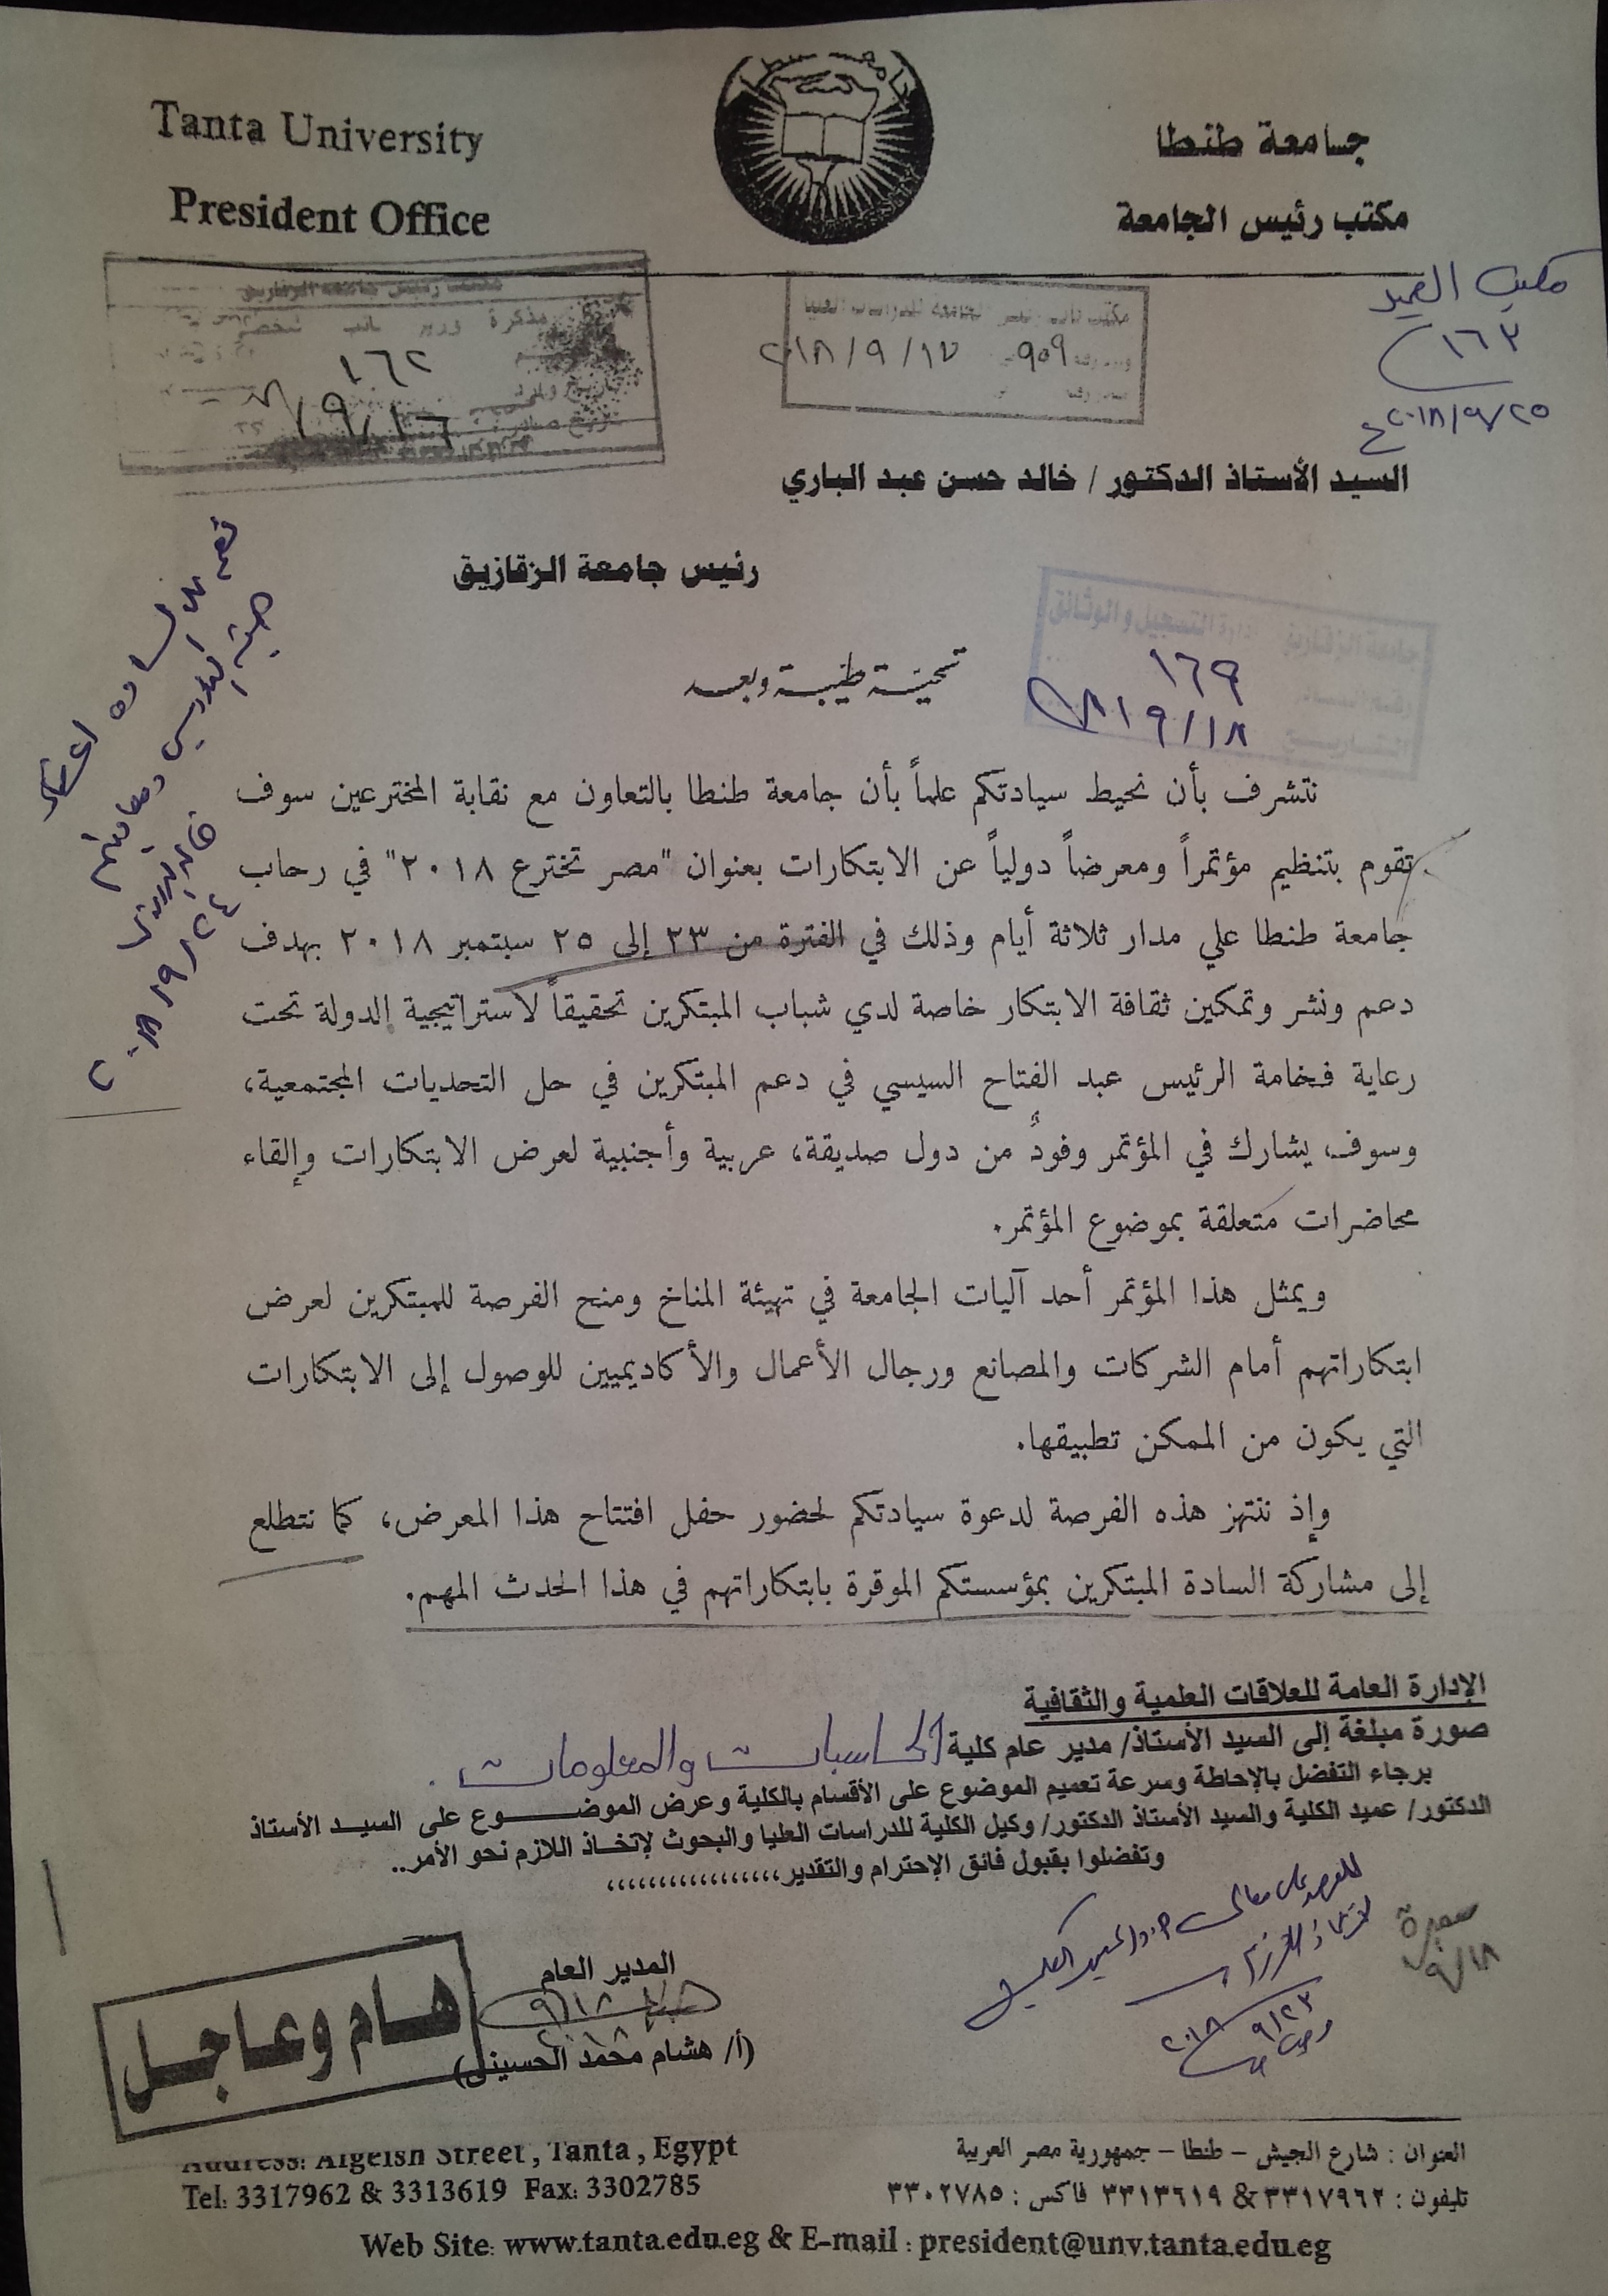 Tanta University
President Office
جامعة طنطا
مكتب رئيس الجامعة
مكتب العميد
١٦٣
٢٠١٨/٩/٢٥
مكتب رئيس جامعة الزقازيق
١٦٢
٩/١٦
٩٥٩ ٢٠١٨/٩/١٧
السيد الأستاذ الدكتور / خالد حسن عبد الباري
رئيس جامعة الزقازيق
١٦٩
٩/١٨
تحية طيبة وبعد
نتشرف بأن نحيط سيادتكم علماً بأن جامعة طنطا بالتعاون مع نقابة المخترعين سوف
تقوم بتنظيم مؤتمراً ومعرضاً دولياً عن الابتكارات بعنوان "مصر تخترع ٢٠١٨" في رحاب
جامعة طنطا علي مدار ثلاثة أيام وذلك في الفترة من ٢٣ إلى ٢٥ سبتمبر ٢٠١٨ بهدف
دعم ونشر وتمكين ثقافة الابتكار خاصة لدي شباب المبتكرين تحقيقاً لاستراتيجية الدولة تحت
رعاية فخامة الرئيس عبد الفتاح السيسي في دعم المبتكرين في حل التحديات المجتمعية،
وسوف يشارك في المؤتمر وفودٌ من دول صديقة، عربية وأجنبية لعرض الابتكارات وإلقاء
محاضرات متعلقة بموضوع المؤتمر.
ويمثل هذا المؤتمر أحد آليات الجامعة في تهيئة المناخ ومنح الفرصة للمبتكرين لعرض
ابتكاراتهم أمام الشركات والمصانع ورجال الأعمال والأكاديميين للوصول إلى الابتكارات
التي يكون من الممكن تطبيقها.
وإذ ننتهز هذه الفرصة لدعوة سيادتكم لحضور حفل افتتاح هذا المعرض، كما نتطلع
إلى مشاركة السادة المبتكرين بمؤسستكم الموقرة بابتكاراتهم في هذا الحدث المهم.
الإدارة العامة للعلاقات العلمية والثقافية
صورة مبلغة إلى السيد الأستاذ/ مدير عام كلية الحاسبات والمعلومات .
برجاء التفضل بالإحاطة وسرعة تعميم الموضوع على الأقسام بالكلية وعرض الموضوع على السيد الأستاذ
الدكتور/ عميد الكلية والسيد الأستاذ الدكتور/ وكيل الكلية للدراسات العليا والبحوث لإتخاذ اللازم نحو الأمر..
وتفضلوا بقبول فائق الإحترام والتقدير،،،،،،،،،،،،،،،،،
٩/٢٣
٢٠١٨
٩/١٨
المدير العام
٩/١٨
(أ/ هشام محمد الحسيني)
هام وعاجل
Address: Algeish Street, Tanta, Egypt
Tel: 3317962 & 3313619 Fax: 3302785
العنوان : شارع الجيش - طنطا - جمهورية مصر العربية
تليفون : ٣٣١٧٩٦٢ & ٣٣١٣٦١٩ فاكس : ٣٣٠٢٧٨٥
Web Site: www.tanta.edu.eg & E-mail : president@unv.tanta.edu.eg